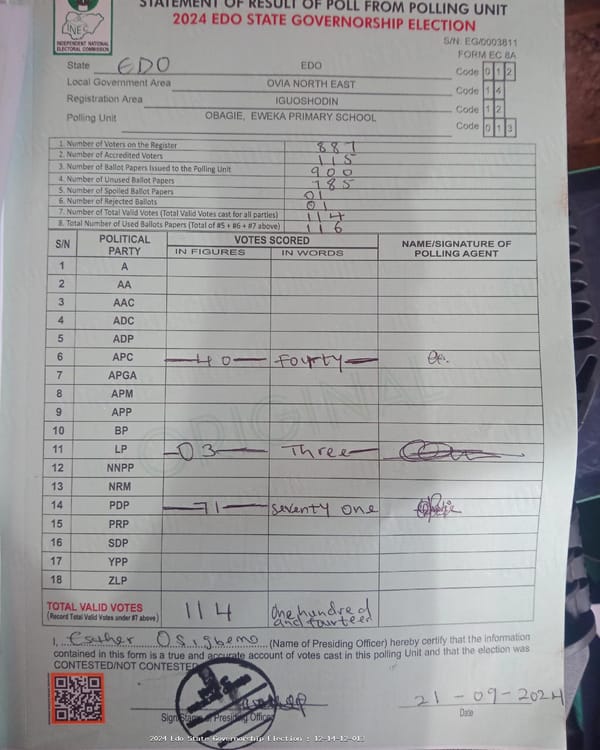 STATEMENT OF RESULT OF POLL FROM POLLING UNIT
2024 EDO STATE GOVERNORSHIP ELECTION
INEC
INDEPENDENT NATIONAL ELECTORAL COMMISSION
S/N: EG/0003811
FORM EC 8A
State EDO EDO Code 0 1 2
Local Government Area OVIA NORTH EAST Code 1 4
Registration Area IGUOSHODIN Code 1 2
Polling Unit OBAGIE, EWEKA PRIMARY SCHOOL Code 0 1 3
1. Number of Voters on the Register 887
2. Number of Accredited Voters 115
3. Number of Ballot Papers Issued to the Polling Unit 900
4. Number of Unused Ballot Papers 785
5. Number of Spoiled Ballot Papers 01
6. Number of Rejected Ballots 01
7. Number of Total Valid Votes (Total Valid Votes cast for all parties) 114
8. Total Number of Used Ballots Papers (Total of #5 + #6 + #7 above) 116
S/N POLITICAL PARTY VOTES SCORED NAME/SIGNATURE OF POLLING AGENT
IN FIGURES IN WORDS
1 A
2 AA
3 AAC
4 ADC
5 ADP
6 APC 40 Fourty
7 APGA
8 APM
9 APP
10 BP
11 LP 03 Three
12 NNPP
13 NRM
14 PDP 71 Seventy one
15 PRP
16 SDP
17 YPP
18 ZLP
ORIGINAL
TOTAL VALID VOTES 114 One hundred and fourteen
(Record Total Valid Votes under #7 above)
I, Esther Osigbemo (Name of Presiding Officer) hereby certify that the information
contained in this form is a true and accurate account of votes cast in this polling Unit and that the election was
CONTESTED/NOT CONTESTED
21-09-2024
Sign Presiding Officer Date
2024 Edo State Governorship Election : 12-14-12-013